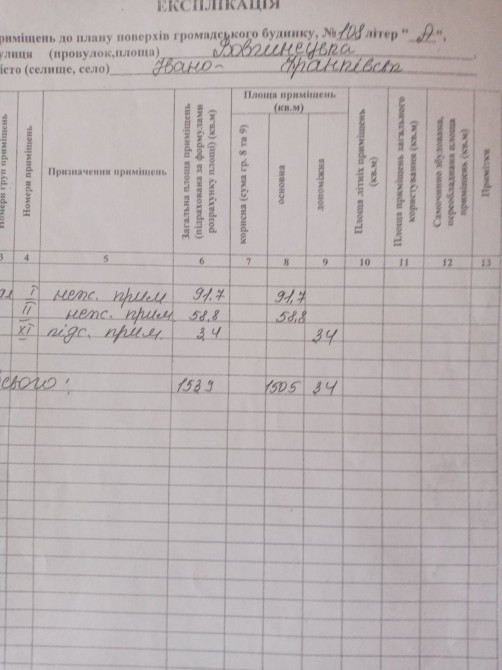 ЕКСПЛІКАЦІЯ
риміщень до плану поверхів громадського будинку, № 108 літер "Д",
улиця (провулок,площа) Вовчинецька
істо (селище, село) Івано-Франківськ
Номери груп приміщень
Номери приміщень
Призначення приміщень
Загальна площа приміщень (підрахована за формулами розрахунку площі) (кв.м)
Площа приміщень (кв.м)
корисна (сума гр. 8 та 9)
основна
допоміжна
Площа літніх приміщень (кв.м)
Площа приміщень загального користування (кв.м)
Самочинно збудована, переобладнана площа приміщень (кв.м)
Примітки
3 4 5 6 7 8 9 10 11 12 13
I неж. прим 91,7 91,7
II неж. прим 58,8 58,8
XI підс. прим. 3,4 3,4
сього: 153,9 150,5 3,4